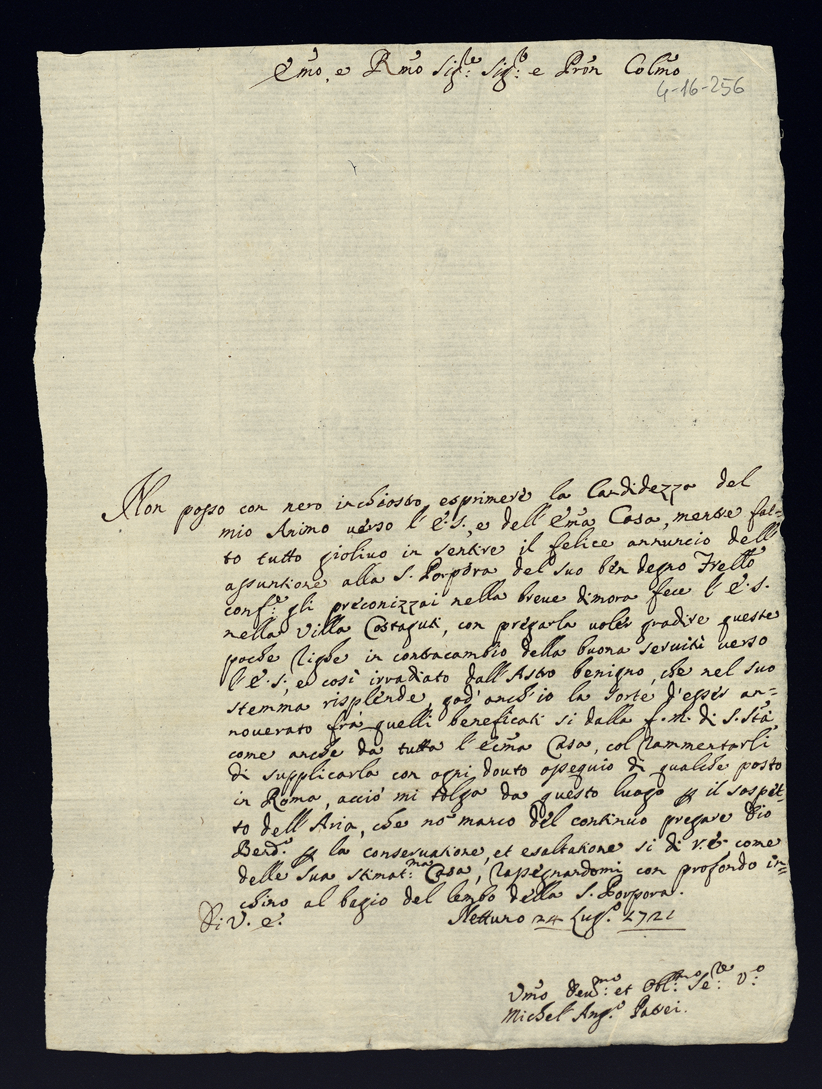 Em̃o, e Rm̃o Sig:re Sig:r e Pron̄ Colm̃o
4-16-256
Non posso con nero inchiostro esprimere la Candidezza del
mio Animo verso l'E.S., e dell'Em̃a Casa, mentre fat=
to tutto giolivo in sentire il felice annuncio dell'
assuntione alla S. Porpora del suo ben degno Frello
conf:e gli preconizzai nella breve dimora fece l'E.S.
nella Villa Costaguti, con pregarla voler gradire queste
poche righe in contracambio della buona servitù verso
l'E.S., e così irradiato dall'Astro benigno, che nel suo
stemma risplende, god'anch'io la sorte d'esser an=
noverato frà quelli beneficati si dalla f.m. di S. Stà
come anche da tutta l'Ecm̃a Casa, col rammentarli
di supplicarla con ogni douto ossequio di qualche posto
in Roma, acciò mi tolga da questo luogo ꝑ il sospet=
to dell'Aria, che no' manco del continuo pregare Dio
Bend:o ꝑ la conservatione, et esaltatione si di V.E. come
della Sua Stimat:ma Casa, rasegnandomi con profondo in=
chino al bagio del lembo della S. Porpora.
Di V. E.
Nettuno 24 Lug:o 1721
Vm̃o Deu:mo et Obl:mo Se:re V:o
Michel Ang:o Passei.